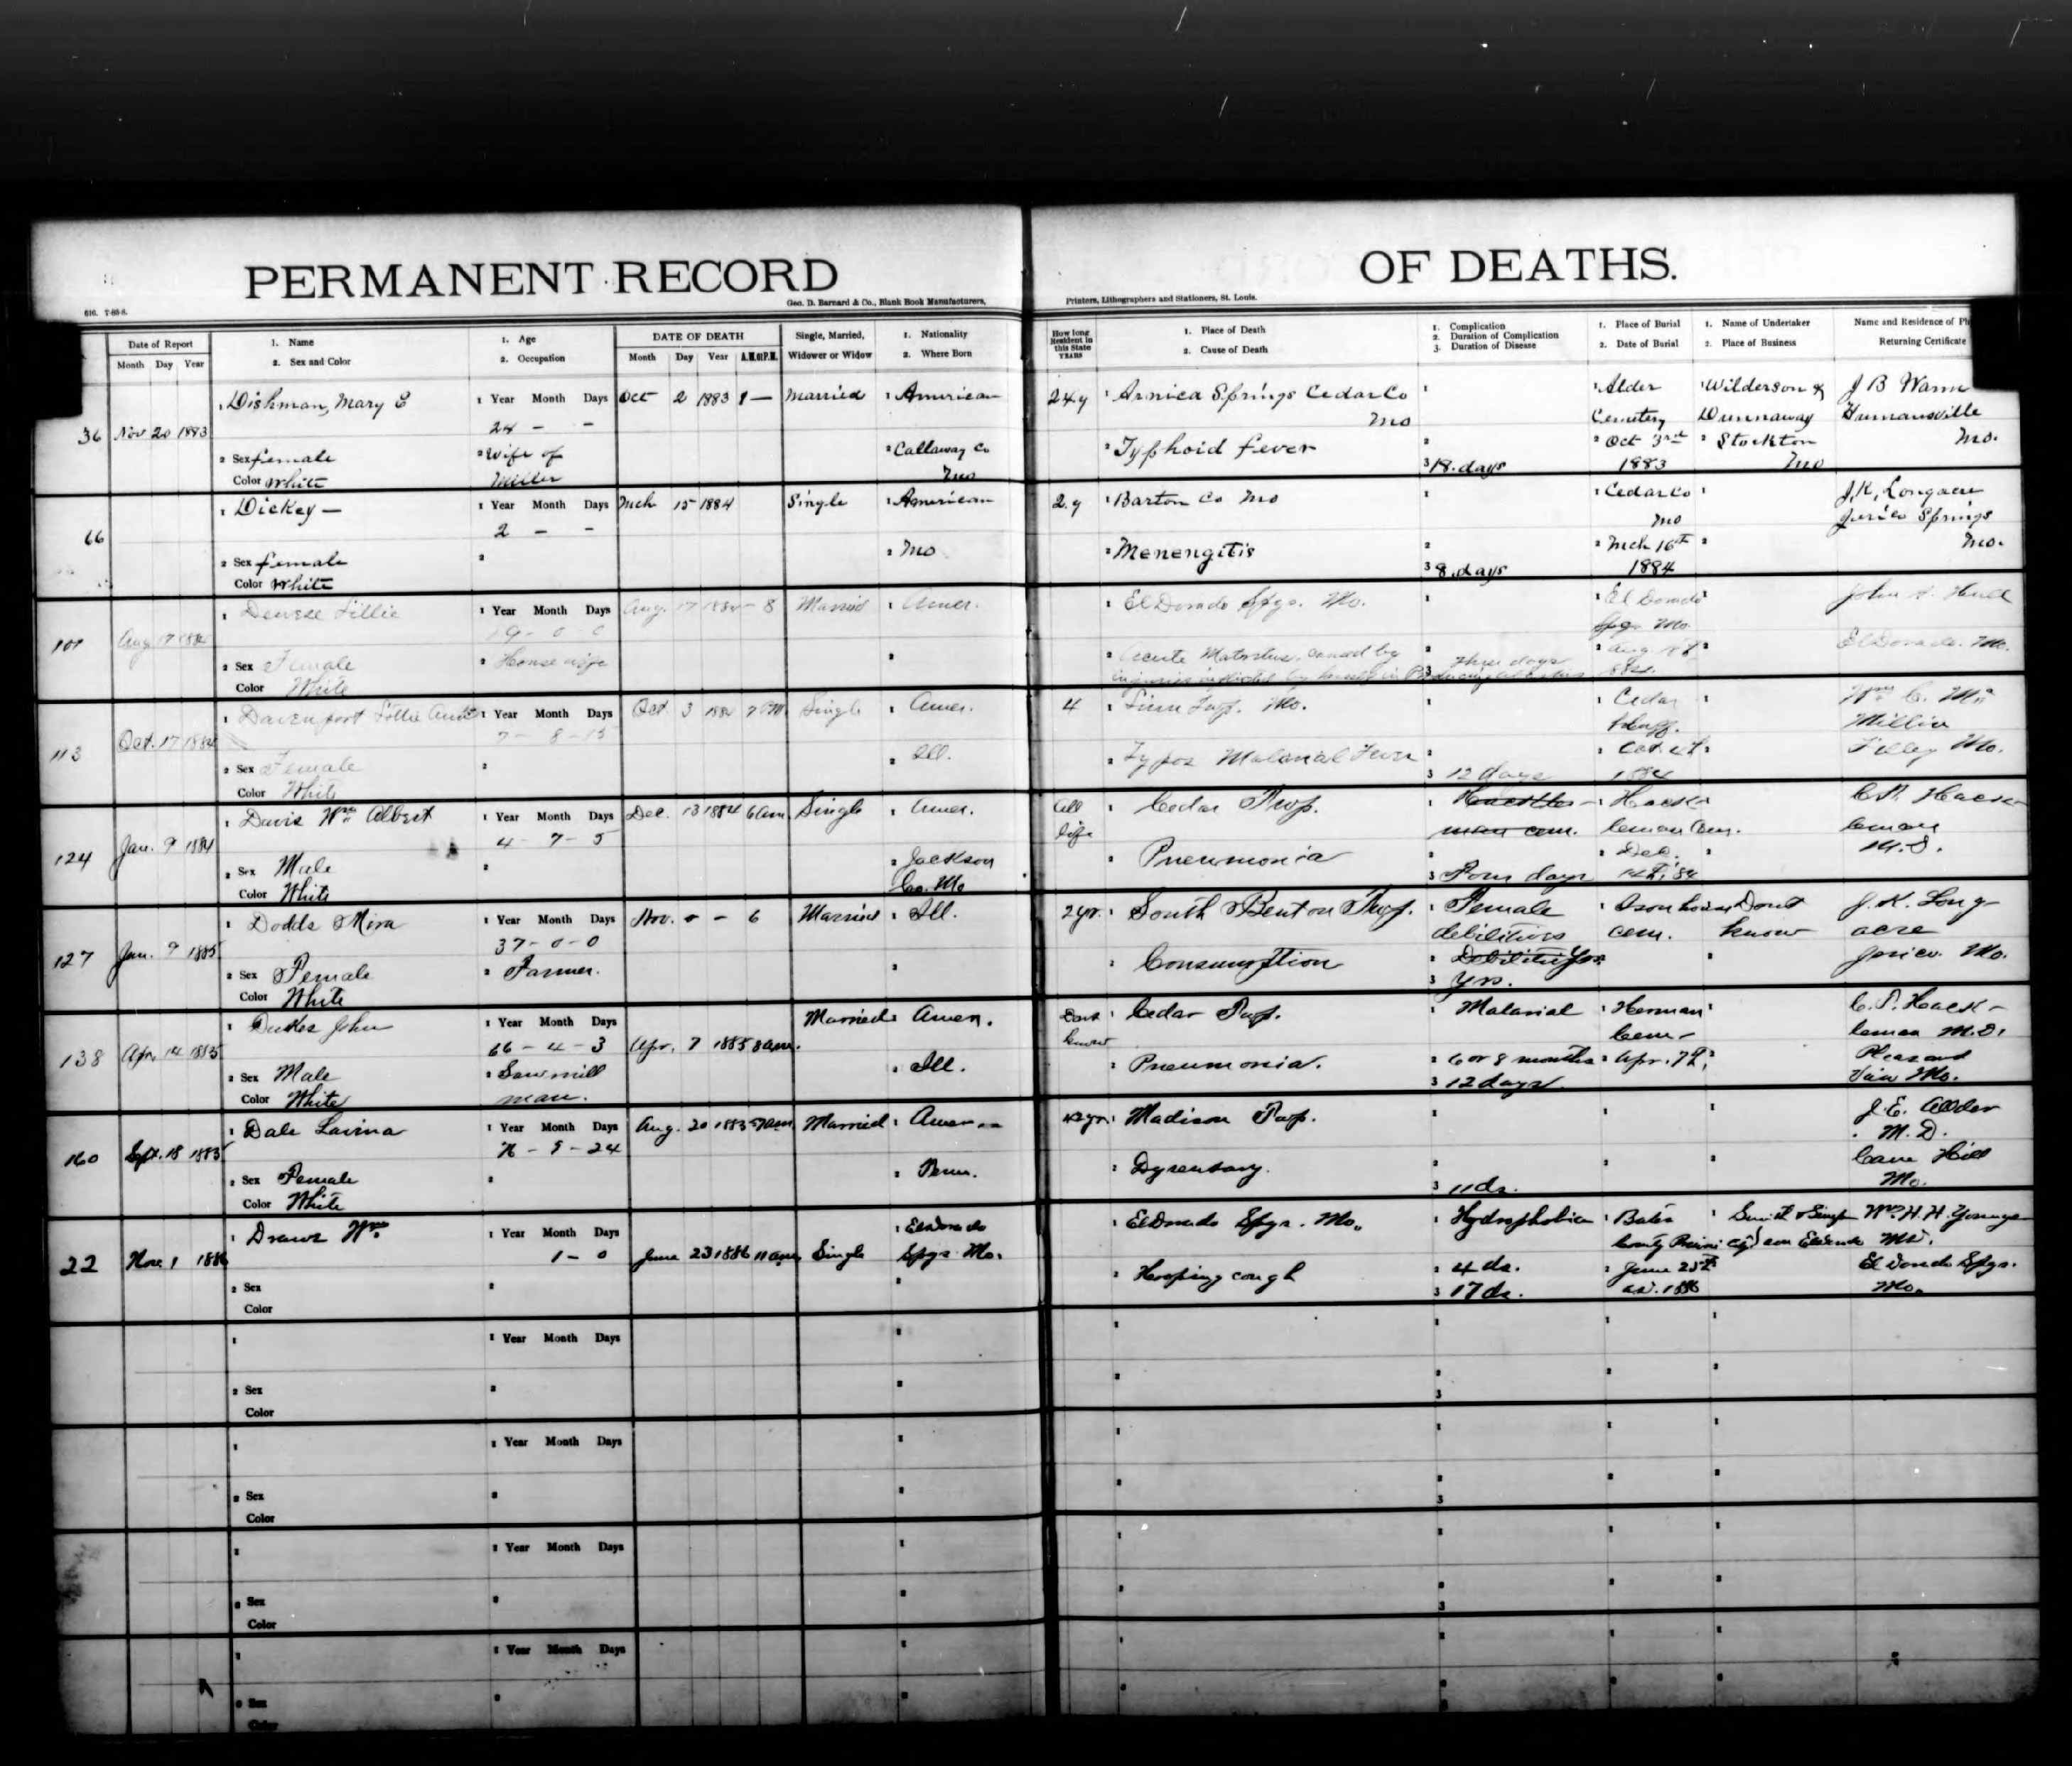 PERMANENT RECORD OF DEATHS.
616. 7-85-S.
Geo. D. Barnard & Co., Blank Book Manufacturers, Printers, Lithographers and Stationers, St. Louis.
Date of Report
Month Day Year
1. Name
2. Sex and Color
1. Age
2. Occupation
DATE OF DEATH
Month Day Year A.M. or P.M.
Single, Married,
Widower or Widow
1. Nationality
2. Where Born
How long
Resident in
this State
YEARS
1. Place of Death
2. Cause of Death
1. Complication
2. Duration of Complication
3. Duration of Disease
1. Place of Burial
2. Date of Burial
1. Name of Undertaker
2. Place of Business
Name and Residence of Ph
Returning Certificate
36 Nov 20 1883
1 Dishman, Mary E
2 Sex female
Color White
1 Year Month Days
24 - -
2 Wife of
Miller
Oct 2 1883 1 —
Married
1 American
2 Callaway Co
Mo
24y
1 Arnica Springs Cedar Co
Mo
2 Typhoid fever
1
2
3 18. days
1 Alder
Cemetery
2 Oct 3rd
1883
1 Wilderson &
Dunnaway
2 Stockton
Mo
J B Warn
Humansville
Mo.
66
1 Dickey —
2 Sex female
Color White
1 Year Month Days
2 - -
2
Mch 15 1884
Single
1 American
2 Mo
2.y
1 Barton Co Mo
2 Menengitis
1
2
3 8. days
1 Cedar Co
Mo
2 Mch 16th
1884
1
2
J. K. Longacre
Jerico Springs
Mo.
Aug 17
1 Lillie
2 Sex Female
Color White
1 Year Month Days
19 - 0 0
2 House wife
Aug. 17 8
Married
1 Amer.
2
1 El Dorado Spgs. Mo.
2 Acute caused by
1
2
3 three days
1 El Dorado
Spgs Mo.
2 Aug. 18
1
2
John
El Dorado. Mo.
113 Oct. 17 1884
1 Davenport Lottie
2 Sex Female
Color White
1 Year Month Days
7 - 8 - 15
2
Oct. 3 7 PM
Single
1 Amer.
2 Ill.
4
1 Linn Twp. Mo.
2 Malarial Fever
1
2
3 12 days
1 Cedar
2 Oct. 4
1884
1
2
Wm C. Mc
Millin
Filley Mo.
124 Jan. 9 1884
1 Davis Wm Albert
2 Sex Male
Color White
1 Year Month Days
4 - 7 - 5
2
Dec. 13 1884 6 am.
Single
1 Amer.
2 Jackson
Co. Mo
All
life
1 Cedar Twp.
2 Pneumonia
1
2
3 Four days
1 Hackle
leman Cem.
2 Dec.
14th, '84
1
2
leman
M.D.
127 Jan. 9 1885
1 Dodds Mira
2 Sex Female
Color White
1 Year Month Days
37 - 0 - 0
2 Farmer.
Nov. - 6
Married
1 Ill.
2
2yr.
1 South Benton Twp.
2 Consumption
1 Female
debilitives
2 Debilities Yrs.
3 yrs.
1
cem.
2
1 Dont
know
2
J. K. Long-
acre
Jerico. Mo.
138 Apr. 14 1885
1 Dukes John
2 Sex Male
Color White
1 Year Month Days
66 - 4 - 3
2 Sawmill
man.
Apr. 7 1885 8 am.
Married
1 Amer.
2 Ill.
Dont
know
1 Cedar Twp.
2 Pneumonia.
1 Malarial
2 6 or 8 months
3 12 days
1 Herman
Cem -
2 Apr. 7th.
1
2
C. P. Hackle-
leman M.D.
Pleasant
View Mo.
160 Sept. 18 1885
1 Dale Lavina
2 Sex Female
Color White
1 Year Month Days
76 - 5 - 24
2
Aug. 20
Married
1 Amer
2 Penn.
42yr.
1 Madison Twp.
2 Dysentary.
1
2
3 11 ds.
1
2
1
2
J. E. Alder
M. D.
Cane Hill
Mo.
22 Nov. 1 1886
1 Wm.
2 Sex
Color
1 Year Month Days
1 - 0
2
June 23 1886 11 am
Single
1 Eldorado
Spgs Mo.
2
1 ElDorado Spgs. Mo.
2 Hooping cough
1 Hydrophobia
2 4 ds.
3 17 ds.
1 Bates
County
2 June 25th
A.D. 1886
1 Smith &
2
Wm. H. H. Younge
MD.
El dorado Spgs.
Mo.
1
2 Sex
Color
1 Year Month Days
2
1
2 Sex
Color
1 Year Month Days
2
1
2 Sex
Color
1 Year Month Days
2
1
2 Sex
Color
1 Year Month Days
2